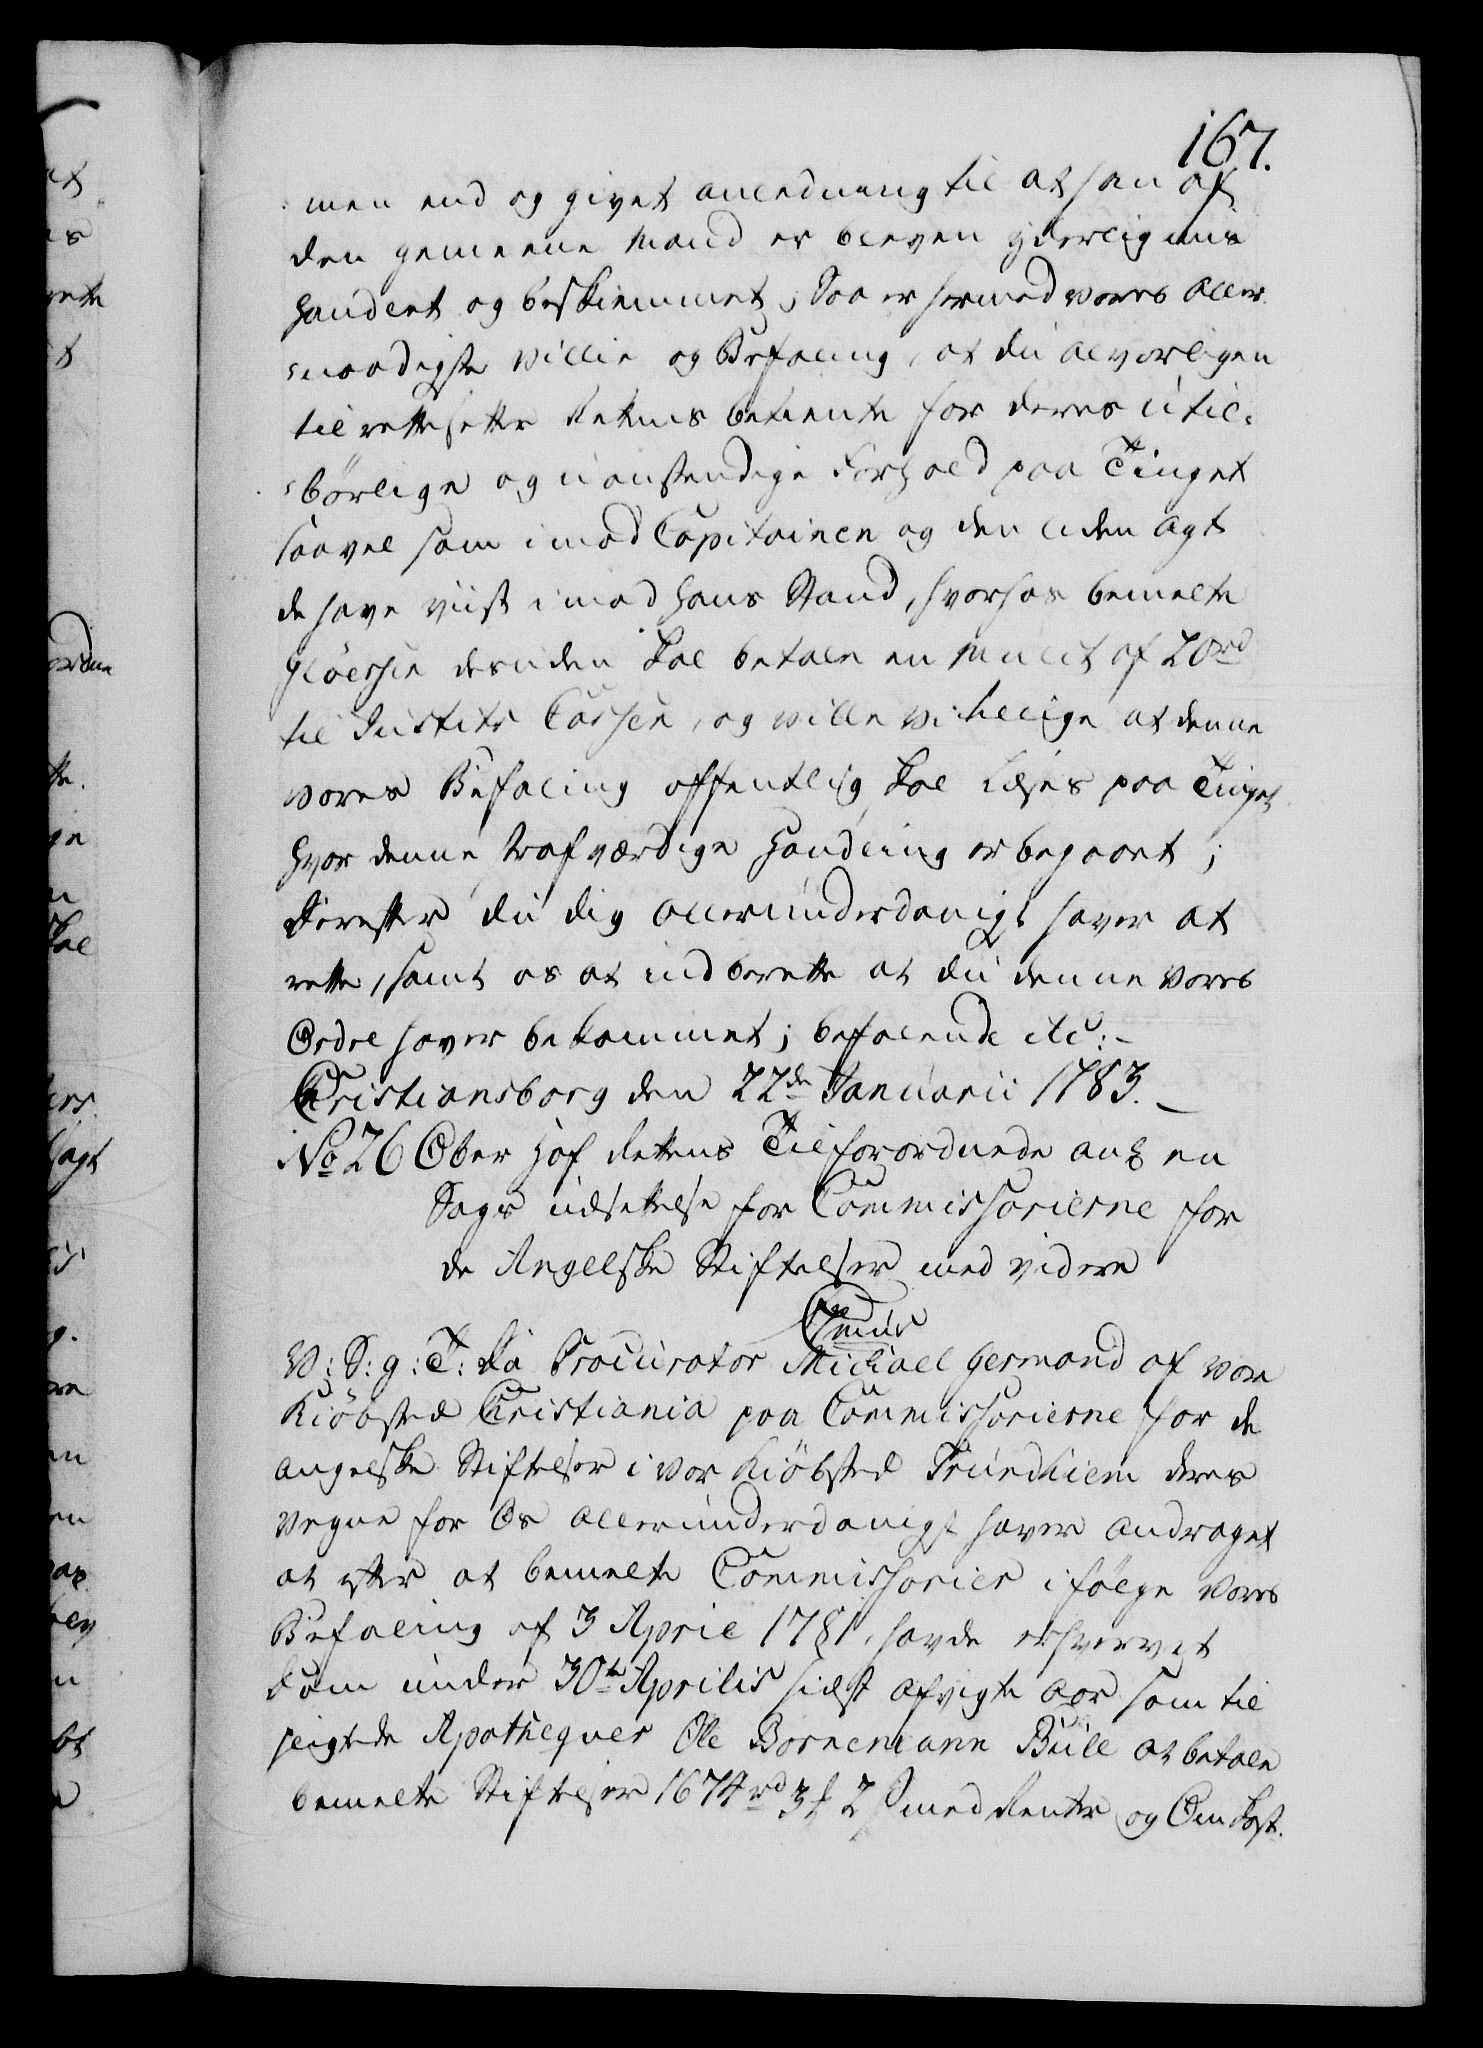 167.
men end og givet anledning til at han af
den gemeene Mand er bleven yderlig mis
handlet og beskiemmet; Saa er hermed vores Aller
naadigste villie og Befaling, at du alvorligen
tilrettesette Rettens betiente for deres util-
börlige og uanstændige Forhold paa Tinget
saavel som imod Capitainen og den liden Agt
de have viist imod hans Stand, hvorhos bemelte
desuden skal betale en Mulct af 20rd
til Justits Cassen, og ville vi tillige at denne
vores Befaling offentlig skal Læses paa Tinget
hvor denne strafværdige Handling er begaaet;
Derefter du dig allerunderdanigst haver at
rette, samt os at indberette at du denne vores
Ordre haver bekommet; befalende etc:-
Christiansborg den 22de Januarii 1783.
No 26 Ober Hof Rettens Tilforordnede ang en
Sags udsettelse for Commissarierne for
de Angelske Stiftelser med videre
V: S: g: T: Da Procurator Michael Germand af vor
Kiöbsted Christiania paa Commissarierne for de
Angelske Stiftelser i vor Kiöbsted Trundhiem deres
vegne for Os allerunderdanigst haver andraget
at efter at bemelte Commissarier ifölge vores
Befaling af 3 April 1781, havde erhvervet
Dom under 30te Aprilis sidst afvigte Aar som til
pligtede Apothequer Ole Bornemann Bull at betale
bemelte Stiftelser 1674rd 3 2 med Renter og Omkost.